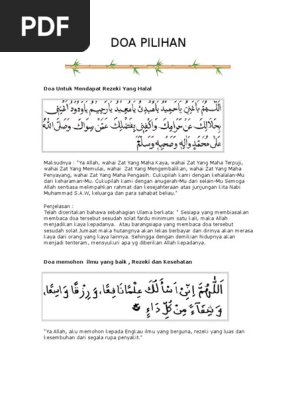 PDF
DOA PILIHAN
Doa Untuk Mendapat Rezeki Yang Halal
اَللّٰهُمَّ يَاغَنِيُّ يَاحَمِيْدُ يَامُبْدِئُ يَامُعِيْدُ يَارَحِيْمُ يَاوَدُوْدُ اَغْنِنِيْ
بِحَلَالِكَ عَنْ حَرَامِكَ وَاكْفِنِيْ بِفَضْلِكَ عَمَّنْ سِوَاكَ وَصَلَّى اللّٰهُ
عَلَى مُحَمَّدٍ وَآلِهِ وَصَحْبِهِ وَسَلَّمَ
Maksudnya : "Ya Allah, wahai Zat Yang Maha Kaya, wahai Zat Yang Maha Terpuji,
wahai Zat Yang Memulai, wahai Zat Yang Mengembalikan, wahai Zat Yang Maha
Penyayang, wahai Zat Yang Maha Pengasih. Cukuplah kami dengan kehalalan-Mu
dari keharaman-Mu. Cukuplah kami dengan anugerah-Mu dari selain-Mu Semoga
Allah sentiasa melimpahkan rahmat dan kesejahteraan atas junjungan kita Nabi
Muhammad S.A.W, keluarga dan para sahabat beliau."
Penjelasan :
Telah diceritakan bahawa sebahagian Ulama berkata: " Siesiapa yang membiasakan
membaca doa tersebut sesudah solat fardu minimum satu kali, maka Allah
menjadikan kaya kepadanya. Atau barangsiapa yang membaca doa tersebut
sesudah solat Jumaat maka hutangnya akan lekas berbayar dan dirinya akan merasa
kaya dari orang yang kaya lainnya. Sehingga dengan demikian hidupnya akan
menjadi tenteram, mensyukuri apa yg diberikan Allah kepadanya.
Doa memohon ilmu yang baik , Rezeki dan Kesehatan
اَللّٰهُمَّ اِنِّيْ اَسْأَلُكَ عِلْمًا نَافِعًا، وَرِزْقًا وَاسِعًا،
وَشِفَاءً مِنْ كُلِّ دَاءٍ
"Ya Allah, aku memohon kepada Engkau ilmu yang berguna, rezeki yang luas dan
kesembuhan dari segala rupa penyakit."